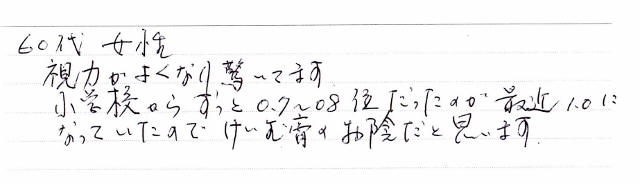 60代 女性
視力がよくなり驚いてます
小学校からずっと0.7〜08位だったのが最近1.0に
なっていたので けいむ膏のお陰だと思います